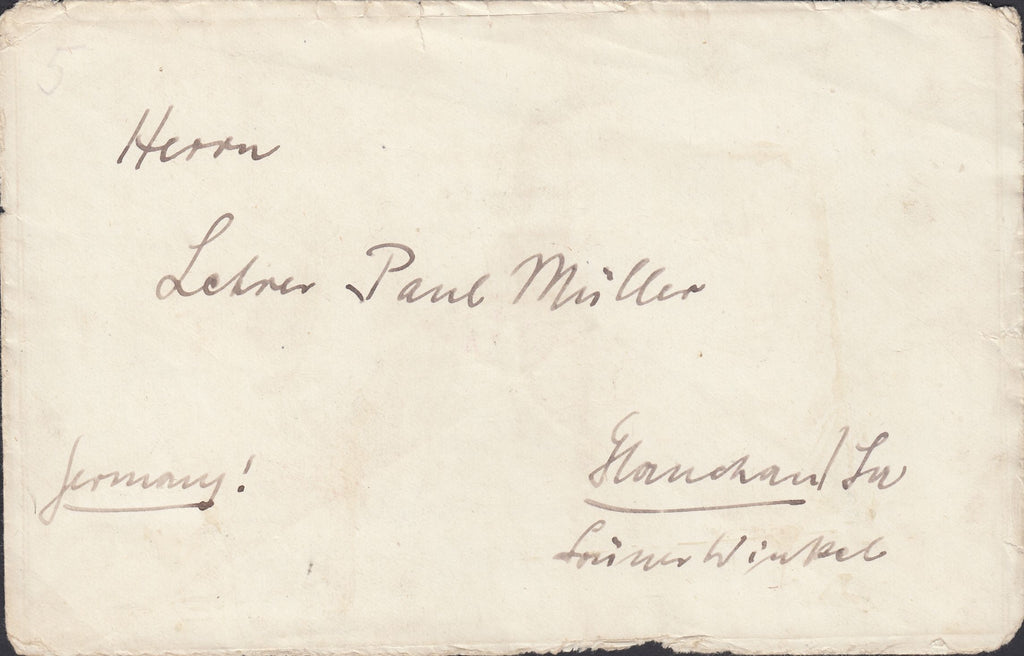 5
Herrn
Lehrer Paul Müller
Germany!
Glauchau/Sa
Grüner Winkel